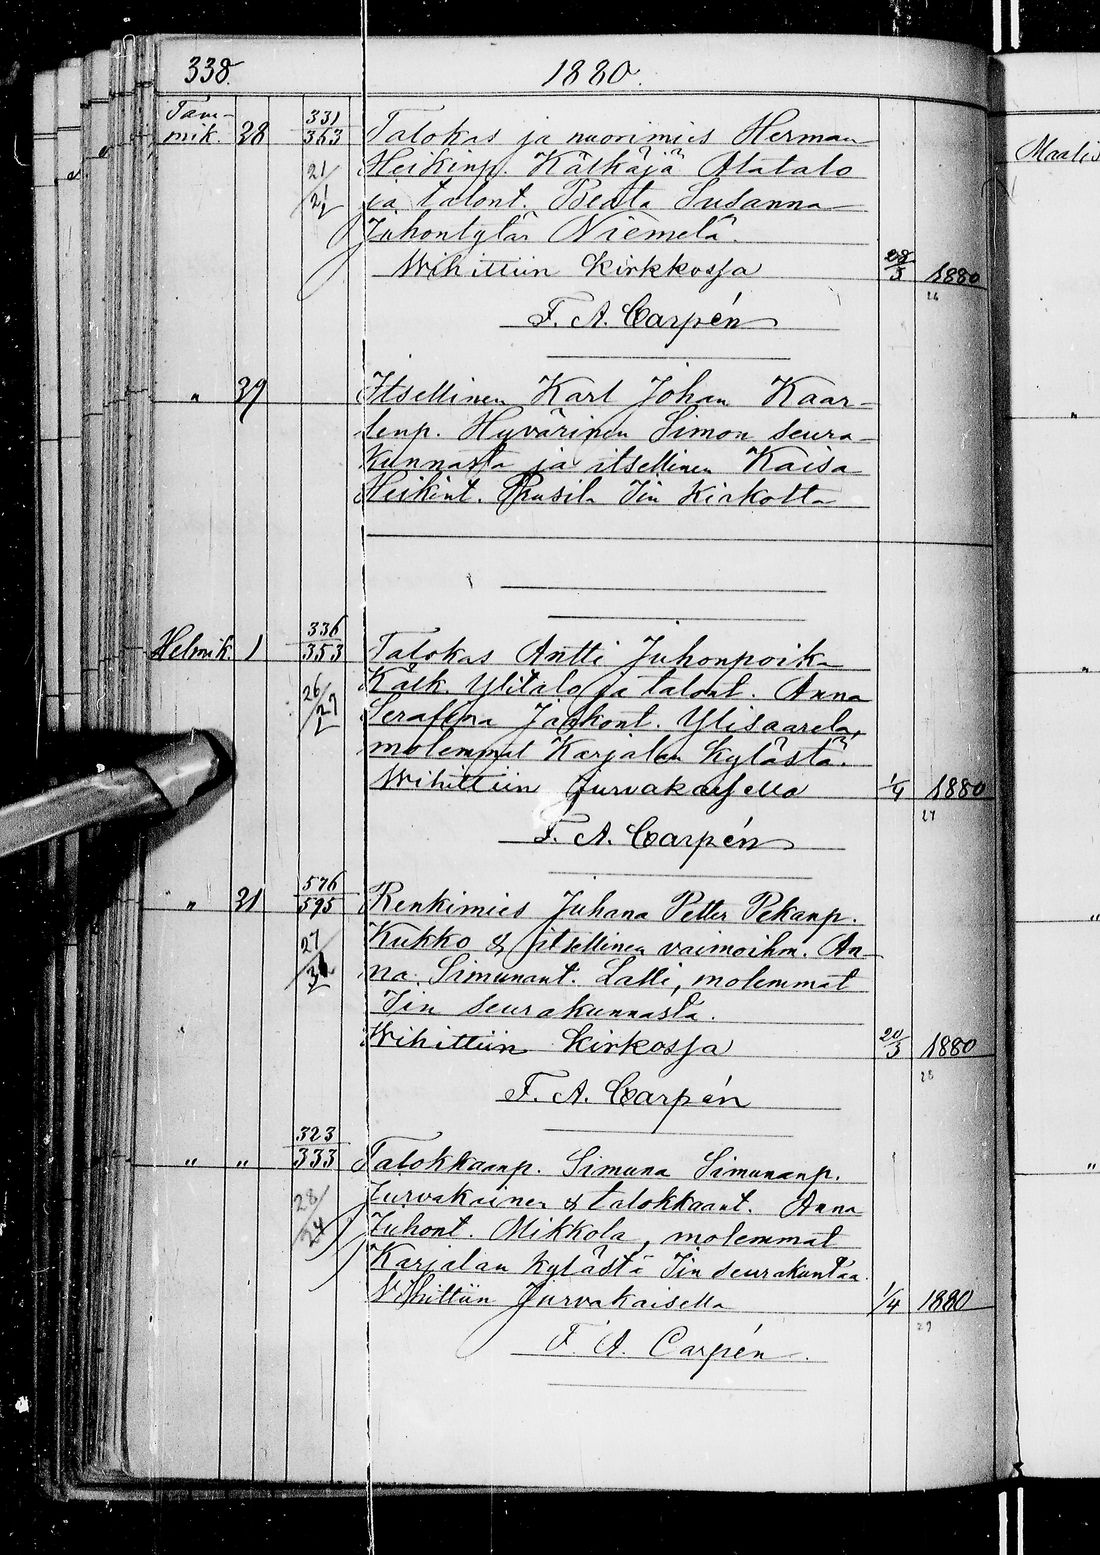 338. 1880.
Tam-
mik. 28 331/363 Talokas ja nuorimies Herman
21/21 Heikinp. Kälkäjä Alatalo
ja talont. Beata Susanna
Juhontytär Niemelä.
Wihittiin Kirkkossa 28/3 1880
26
F. A. Carpén
" 29 Itsellinen Karl Johan Kaar-
lenp. Hyvärinen Simon seura-
kunnasta ja itsellinen Kaisa
Heikint. Iin Kirkolta
Helmik 1 336/353 Talokas Antti Juhonpoika
26/27 Kälk. Ylitalo ja talont. Anna
Serafina Jaakont. Ylisaarela,
molemmat Karjalan Kylästä.
Wihittiin Jurvakaisella 1/4 1880
27
F. A. Carpén
" 21 576/595 Renkimies Juhana Petter Pekanp.
27/31 Kukko & itsellinen vaimoihm. An-
na Simunant. Lalli, molemmat
Iin seurakunnasta.
Wihittiin Kirkossa 20/3 1880
28
F. A. Carpén
" " 323/333 Talokkaanp. Simuna Simunanp.
28/24 Jurvakainen & talokkaant. Anna
Juhont. Mikkola, molemmat
Karjalan kylästä Iin seurakuntaa.
Wihittiin Jurvakaisella 1/4 1880
29
F. A. Carpén.
Maalis
"
"
"
"